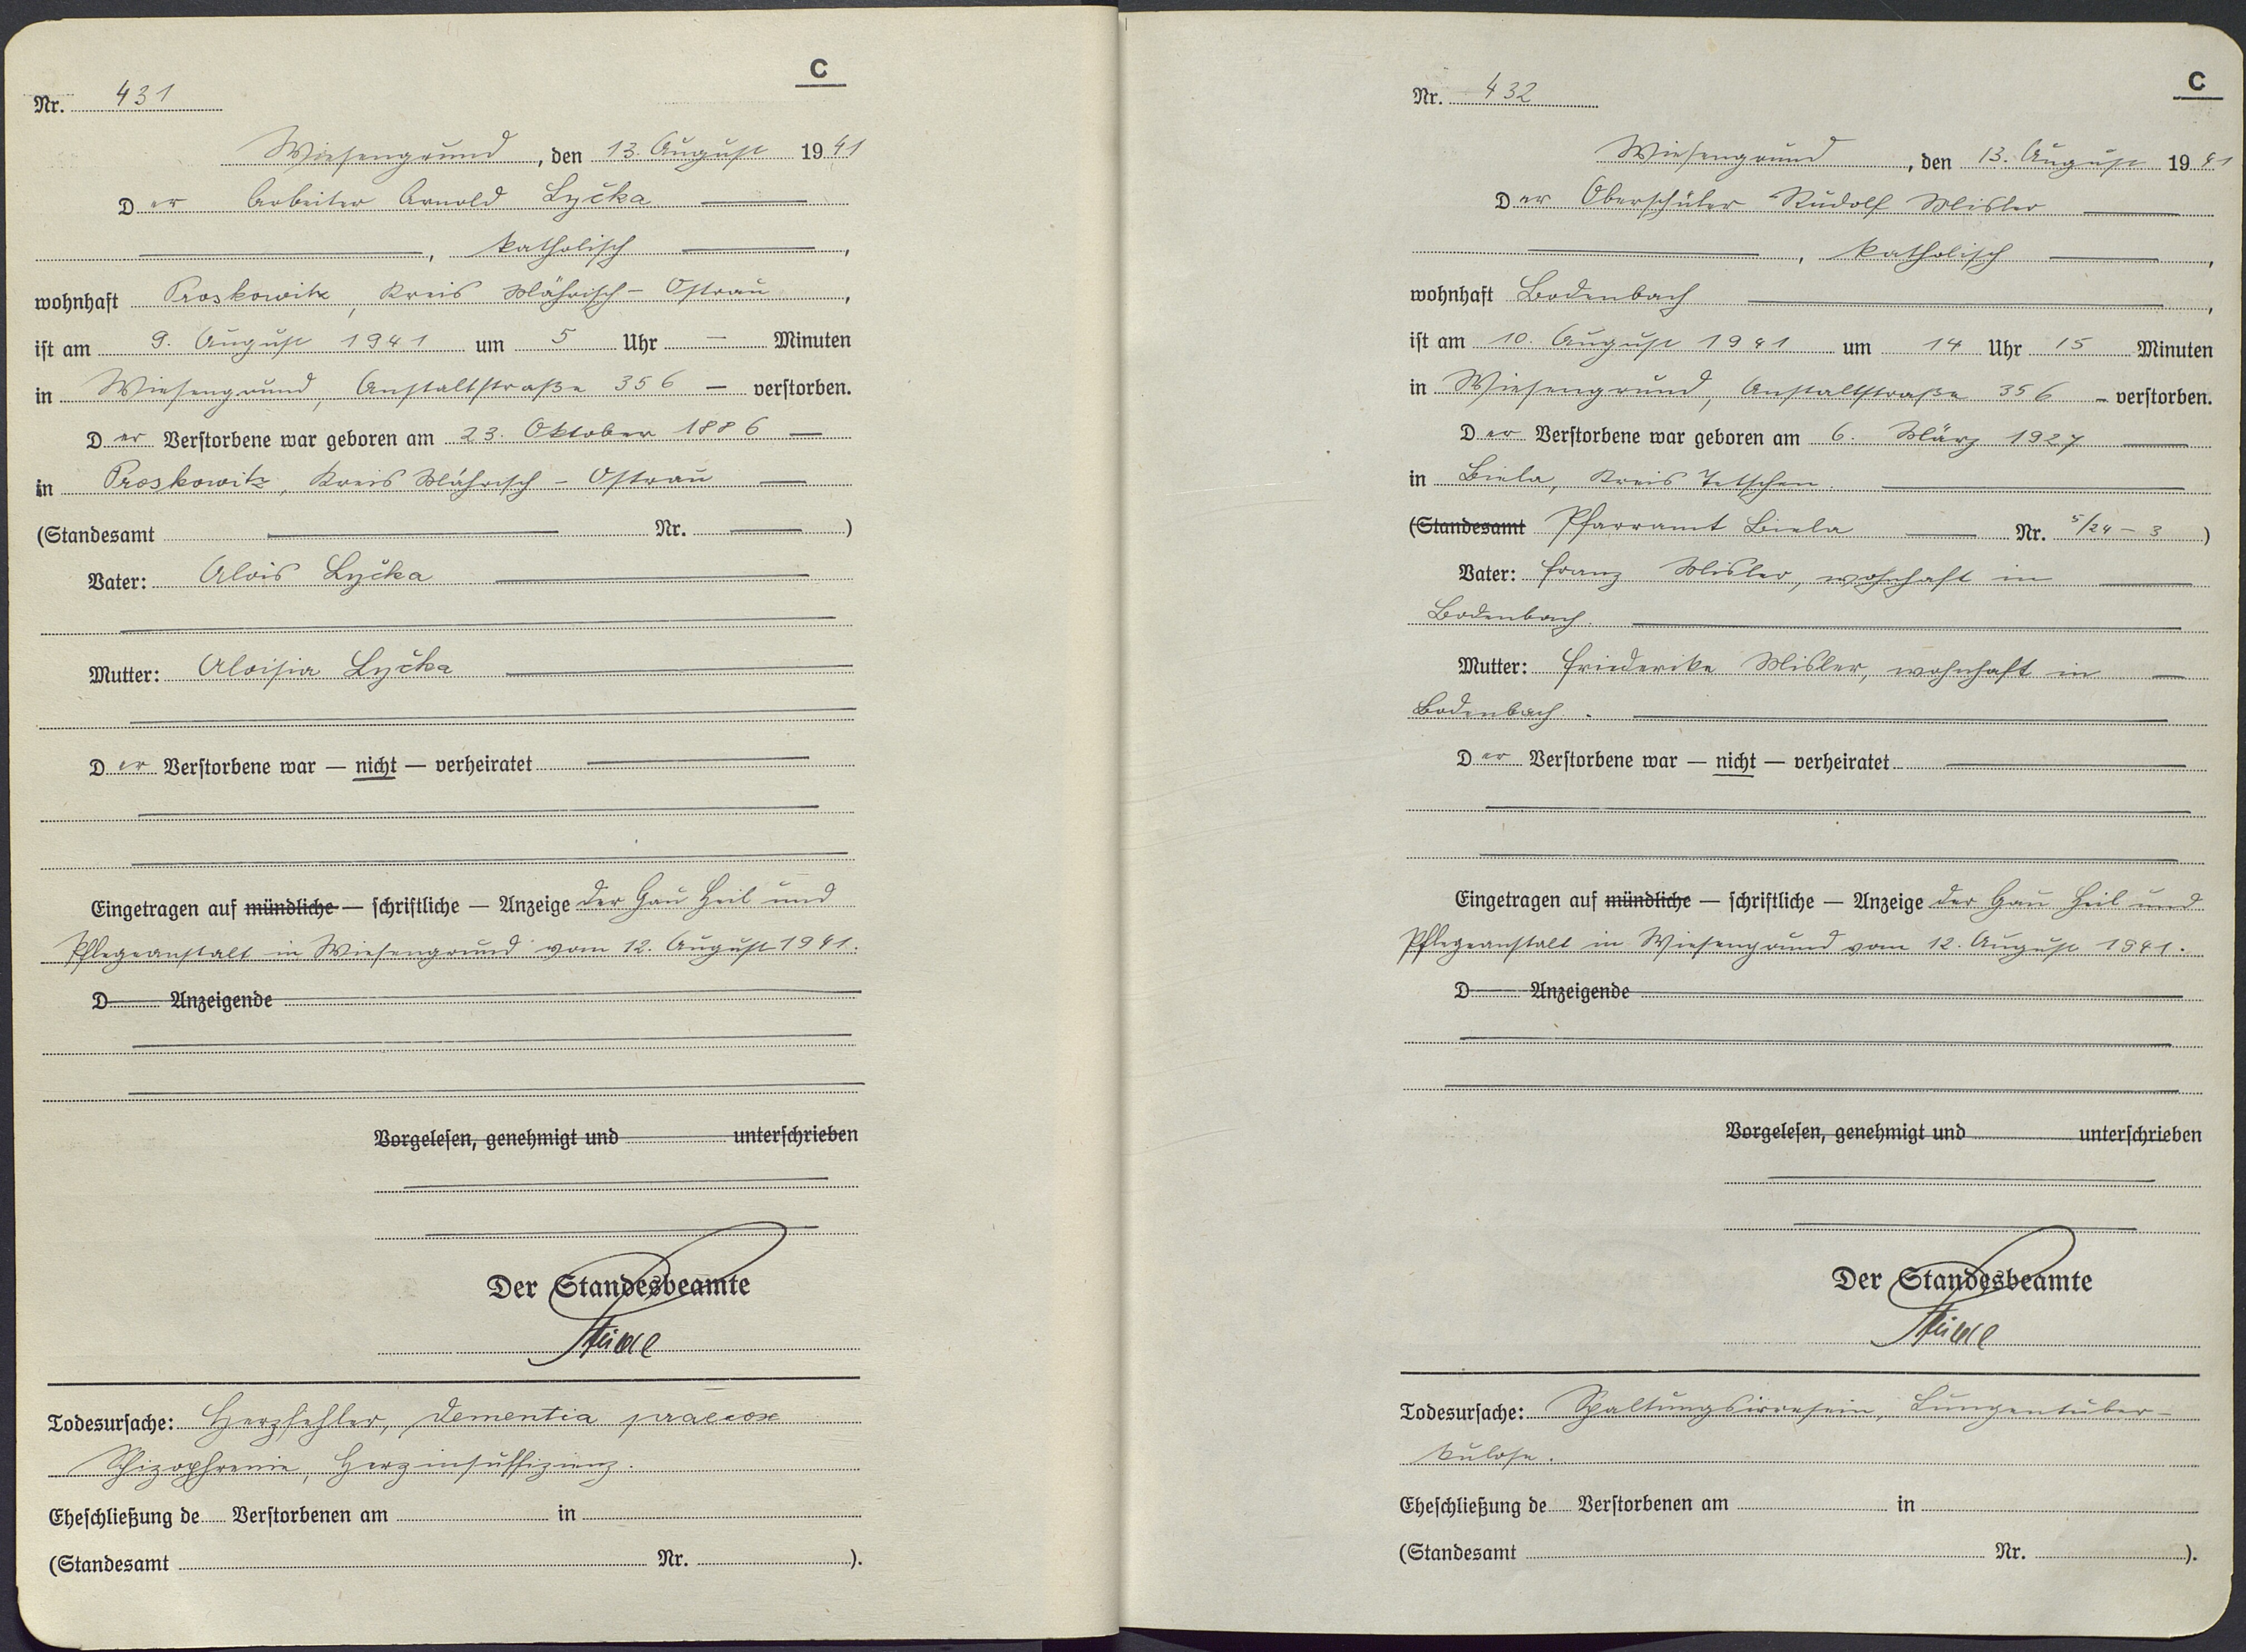 C
Nr. 431
Wiesengrund, den 13. August 1941
Der Arbeiter Arnold Lyčka
, katholisch ,
wohnhaft Proskowitz, Kreis Mährisch-Ostrau ,
ist am 9. August 1941 um 5 Uhr — Minuten
in Wiesengrund, Anstaltstraße 356 — verstorben.
Der Verstorbene war geboren am 23. Oktober 1886 —
in Proskowitz, Kreis Mährisch-Ostrau —
(Standesamt — Nr. — )
Vater: Alois Lyčka
Mutter: Aloisia Lyčka
Der Verstorbene war — nicht — verheiratet
Eingetragen auf mündliche — schriftliche — Anzeige der Gau Heil und
Pflegeanstalt in Wiesengrund vom 12. August 1941.
D Anzeigende
Vorgelesen, genehmigt und unterschrieben
Der Standesbeamte
Todesursache: Herzfehler, Dementia praecox
Schizophrenie, Herzinsuffizienz.
Eheschließung de Verstorbenen am in
(Standesamt Nr. ).
C
Nr. 432
Wiesengrund, den 13. August 1941
Der Oberschüler Rudolf Misler
, katholisch ,
wohnhaft Bodenbach ,
ist am 10. August 1941 um 14 Uhr 15 Minuten
in Wiesengrund, Anstaltstraße 356 — verstorben.
Der Verstorbene war geboren am 6. März 1927 —
in Biela, Kreis Tetschen.
(Standesamt Pfarramt Biela — Nr. 5/24 – 3 )
Vater: Franz Misler, wohnhaft in
Bodenbach.
Mutter: Friederike Misler, wohnhaft in
Bodenbach.
Der Verstorbene war — nicht — verheiratet
Eingetragen auf mündliche — schriftliche — Anzeige der Gau Heil und
Pflegeanstalt in Wiesengrund vom 12. August 1941.
D Anzeigende
Vorgelesen, genehmigt und unterschrieben
Der Standesbeamte
Todesursache: Spaltungsirresein, Lungentuber-
kulose.
Eheschließung de Verstorbenen am in
(Standesamt Nr. ).